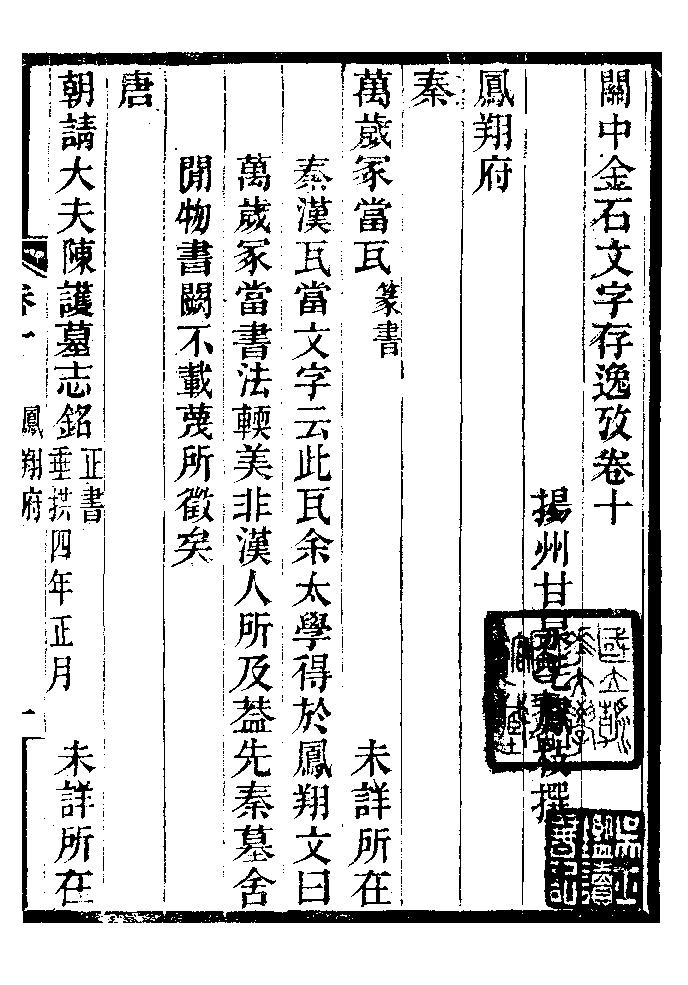 關中金石文字存逸攷卷十
揚州甘泉毛鳳枝撰
鳳翔府
秦
萬歲冢當瓦 篆書 未詳所在
秦漢瓦當文字云此瓦余太學得於鳳翔文曰
萬歲冢當書法輭美非漢人所及葢先秦墓舍
閒物書闕不載蔑所徵矣
唐
朝請大夫陳護墓志銘 正書 垂拱四年正月 未詳所在
卷十 鳳翔府 一